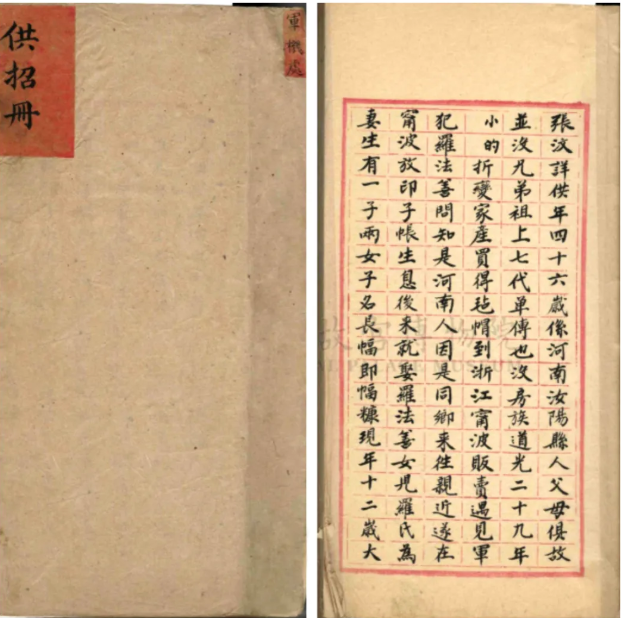 供招冊
軍機處
張汶詳供年四十六歲係河南汝陽縣人父母俱故
並沒兄弟祖上七代單傳也沒房族道光二十九年
小的折變家産買得毡帽到浙江甯波販賣遇見軍
犯羅法善問知是河南人因是同鄉來徃親近遂在
甯波放印子帳生息後来就娶羅法善女児羅氏為
妻生有一子兩女子名長幅即幅糠現年十二歲大